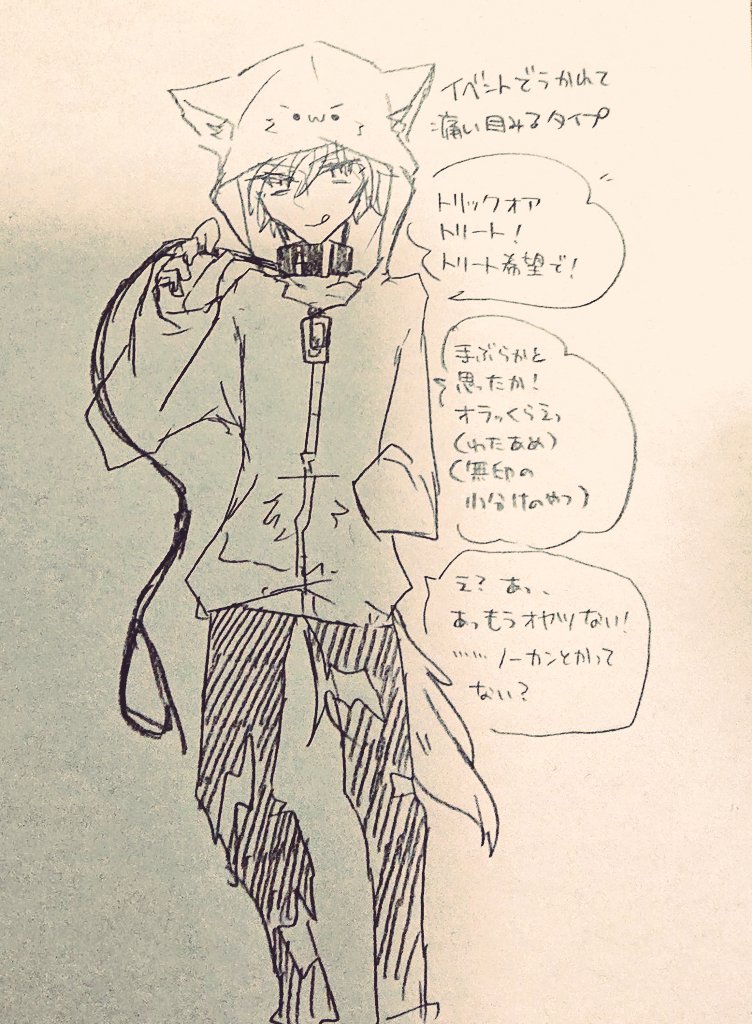 イベントでうかれて
痛い目みるタイプ
トリックオア
トリート！
トリート希望で！
手ぶらかと
思ったか！
オラっくらえっ
（わたあめ）
（無印の
小分けのやつ）
え？あっ、
あっもうオヤツない！
……ノーカンとかって
ない？